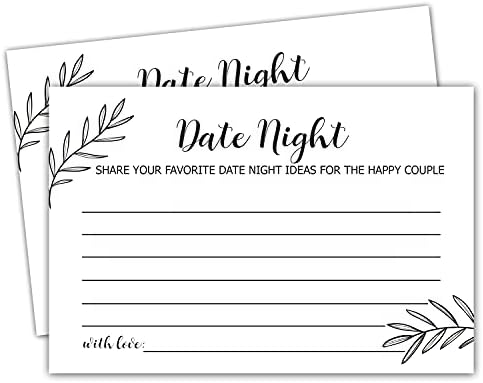 Date Night
Date Night
SHARE YOUR FAVORITE DATE NIGHT IDEAS FOR THE HAPPY COUPLE
with love: